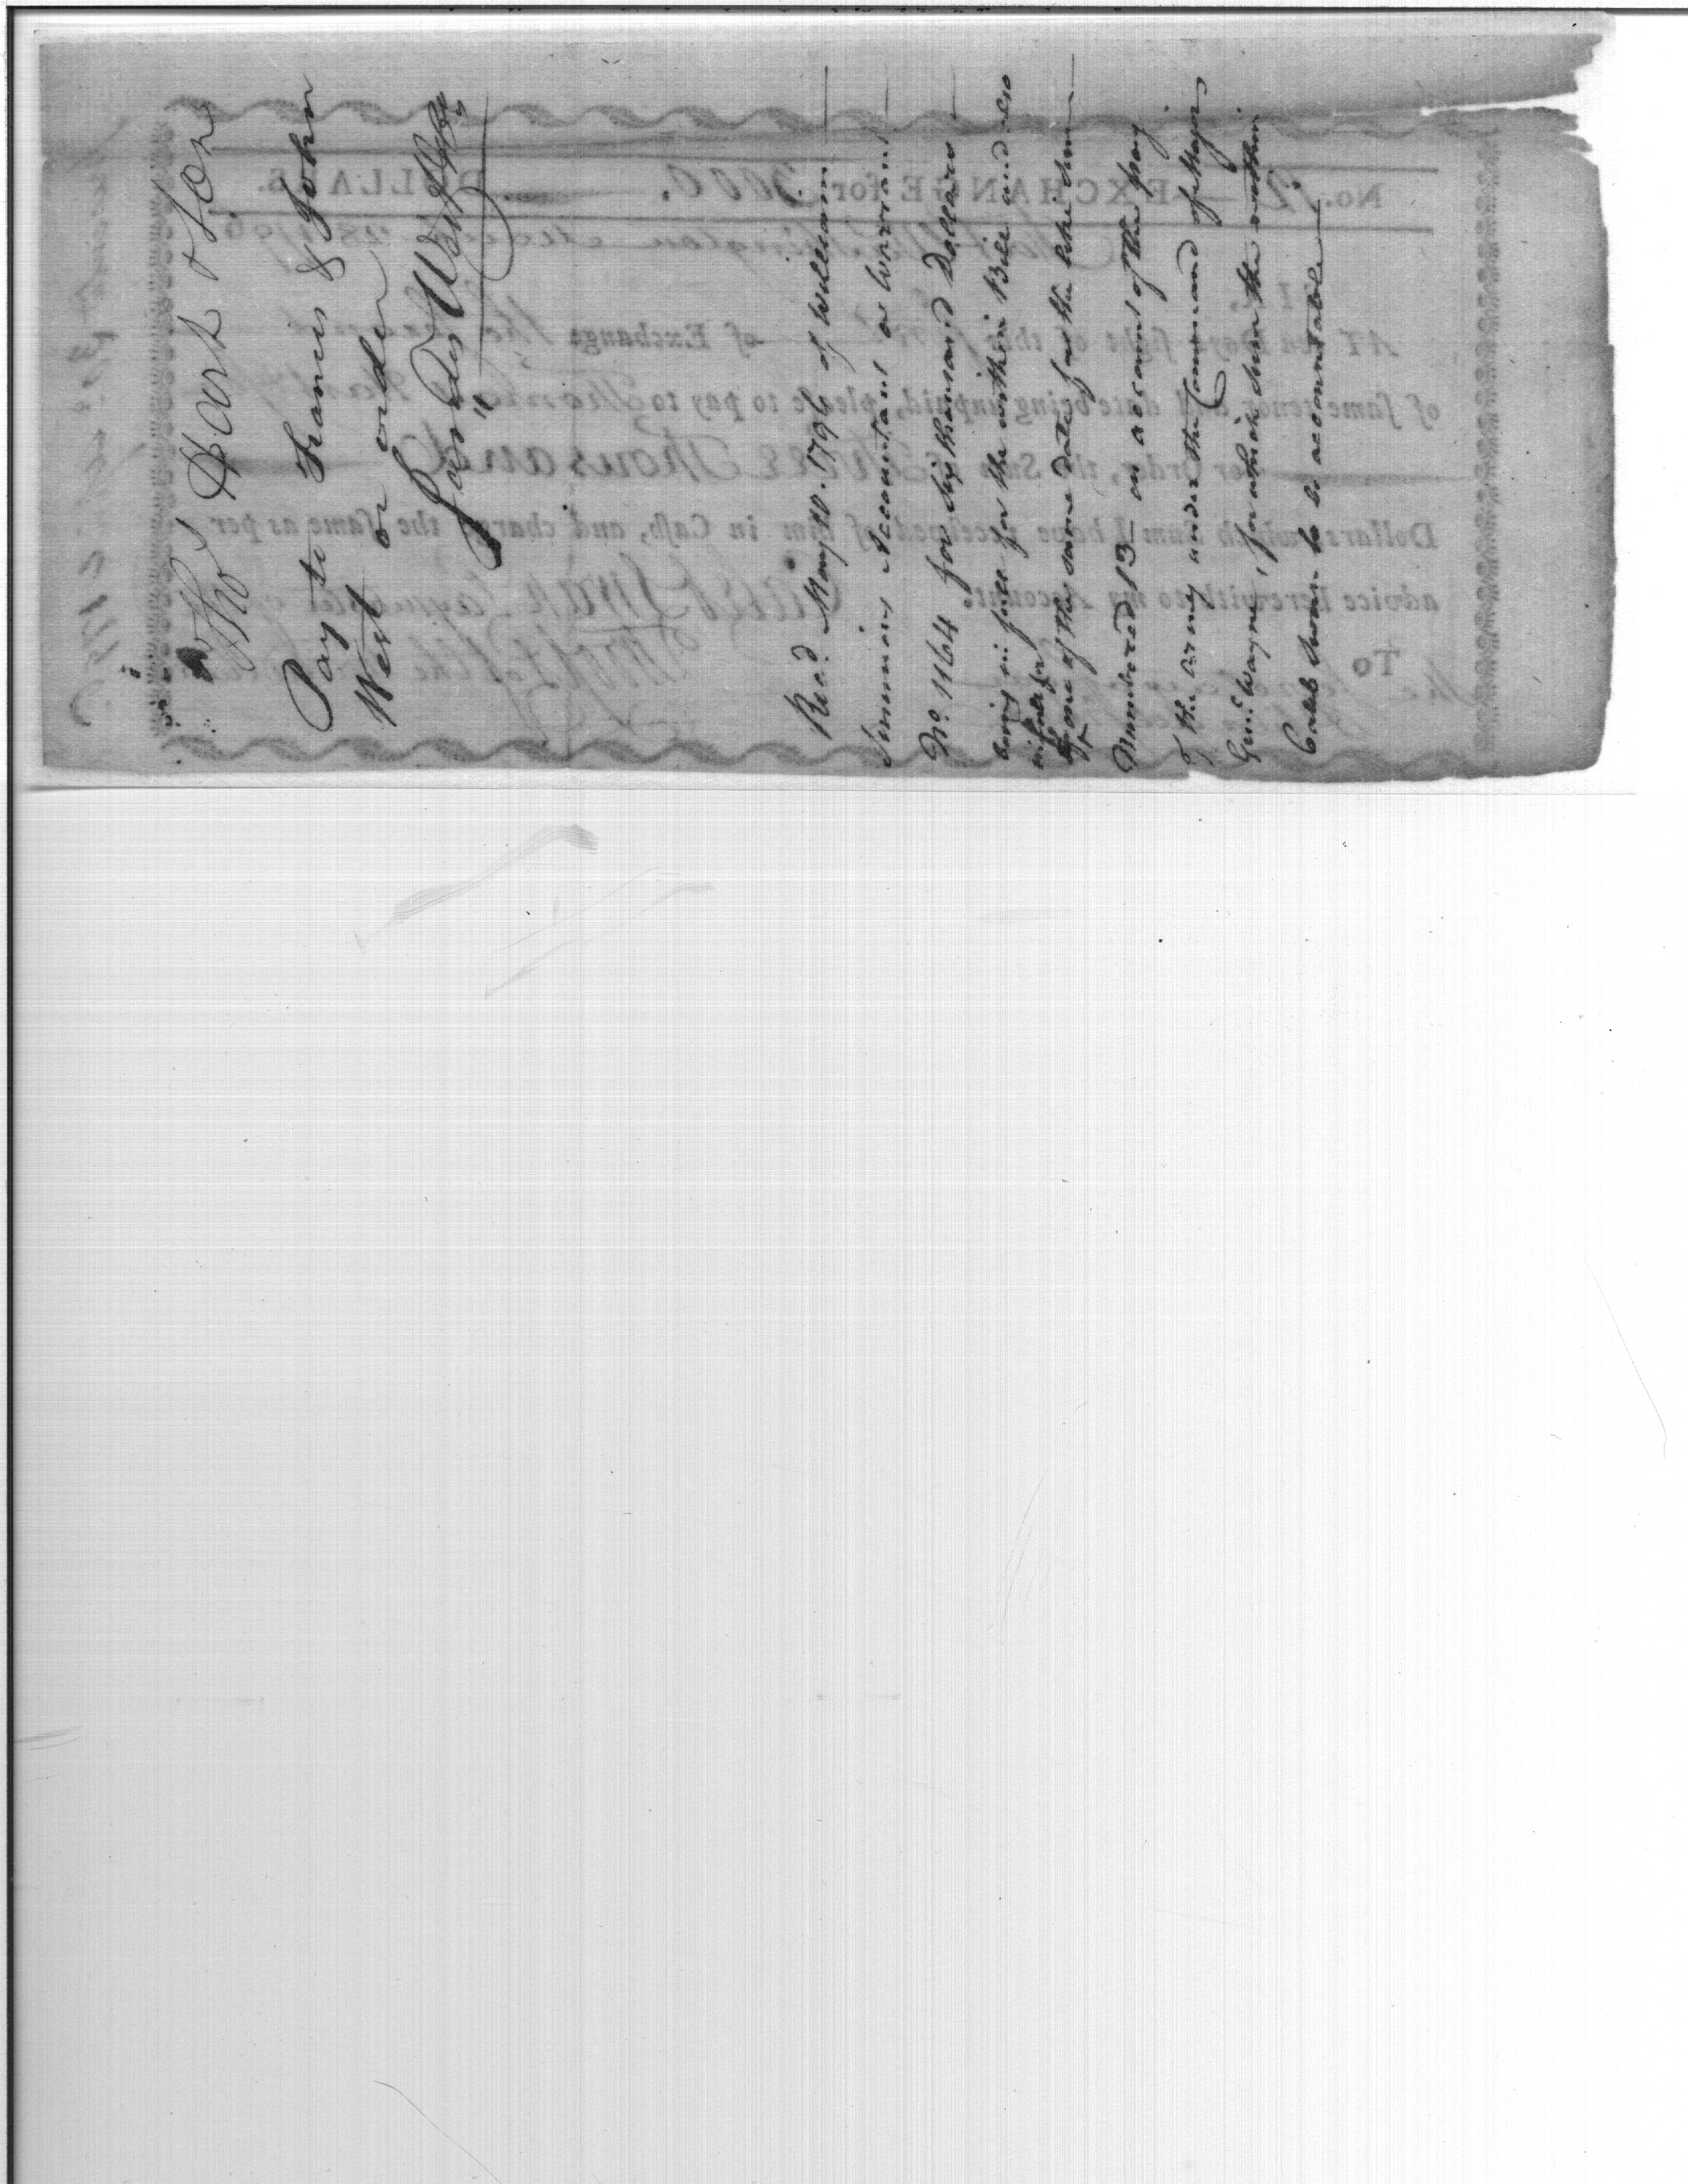 Thos Hart & Son
Pay to Francis & John
West or order
Recd. May 10. 1796 of William
Simmons Accountant a Warrant
No. 1164 for Six thousand Dollars
being in full for the within Bill and also
in full for
one of the same date for the like sum
Numbered 13 on account of the pay
of the army under the Command of Major
Genl. Wayne, for which sum the within
Caleb Swan is to be accountable
No. 12 EXCHANGE for 3000. DOLLARS.
AT ten Days sight of this first of Exchange
of same tenor and date being unpaid, please to pay to Thomas Hart
or Order, the Sum of Three Thousand
Dollars which Sum I have received of him in Cash, and charge the same as per
advice herewith to my Account.
Caleb Swan Paymaster
To